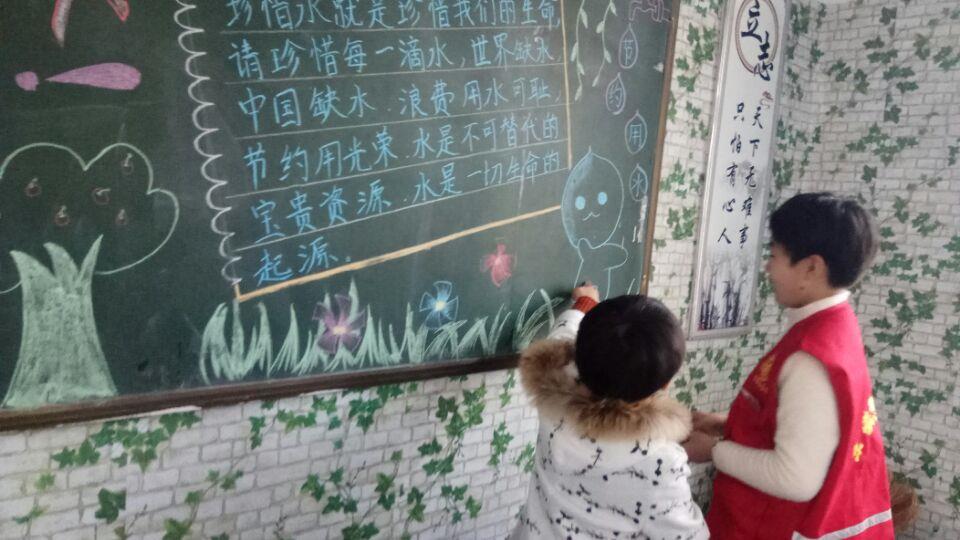 珍惜水就是珍惜我们的生命,
请珍惜每一滴水,世界缺水,
中国缺水.浪费用水可耻,
节约用光荣.水是不可替代的
宝贵资源.水是一切生命的
起源.
节约用水
立志
天下无难事
只怕有心人